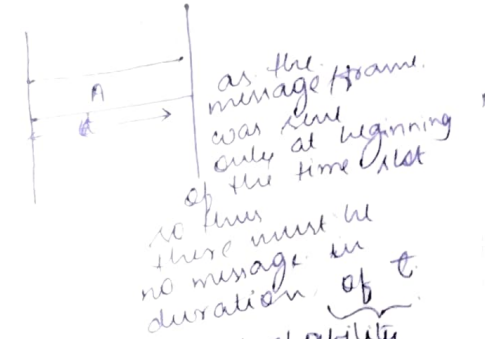 A
t
as the
message frame
was sent
only at beginning
of the time slot
so thus
there must be
no message in
duration of t